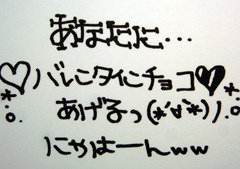 あなたに…
♡バレこタイにチョコ♥
あげるっ(*´∀`*)ノ
にゃはーんww